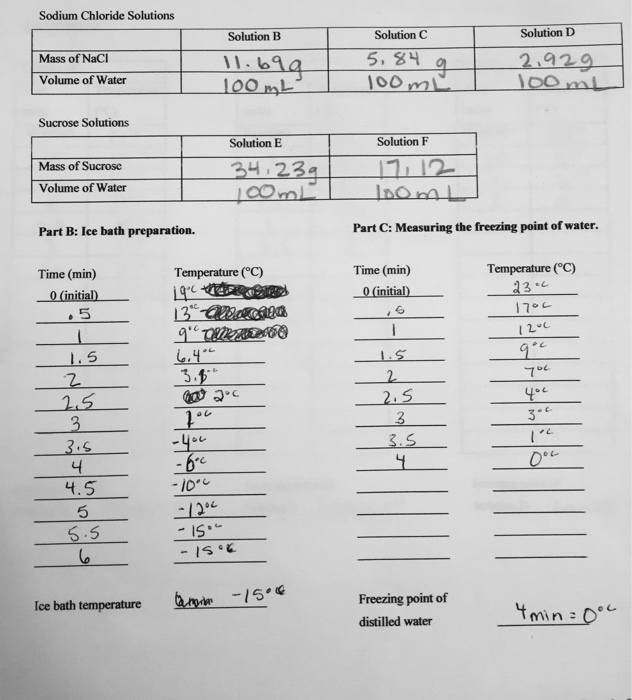 Sodium Chloride Solutions
Solution B Solution C Solution D
Mass of NaCl 11.69g 5.84 g 2.92g
Volume of Water 100 mL 100 mL 100 mL
Sucrose Solutions
Solution E Solution F
Mass of Sucrose 34.23g 17.12
Volume of Water 100mL 100mL
Part B: Ice bath preparation. Part C: Measuring the freezing point of water.
Time (min) Temperature (°C) Time (min) Temperature (°C)
0 (initial) 19°C 0 (initial) 23°C
.5 13°C .5 17°C
1 9°C 1 12°C
1.5 6.4°C 1.5 9°C
2 2 7°C
2.5 2°C 2.5 4°C
3 1°C 3 3°C
3.5 -4°C 3.5 1°C
4 -6°C 4 0°C
4.5 -10°C
5 -12°C
5.5 -15°C
6 -15°C
Ice bath temperature -15°C Freezing point of
distilled water 4min = 0°C